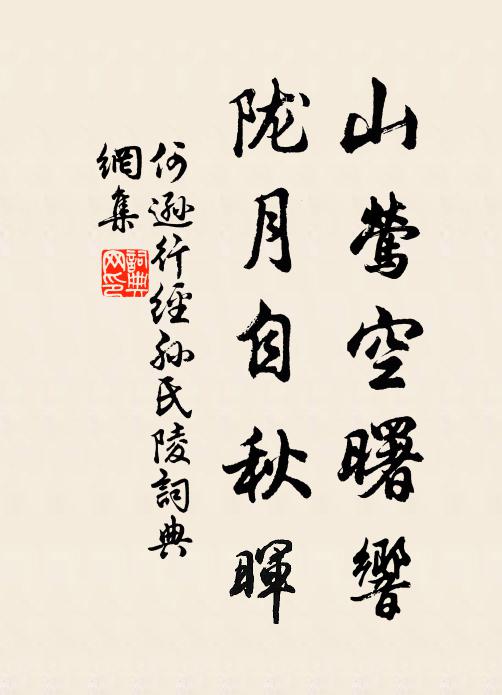 山莺空曙響
陇月自秋暉
何遜行經孙氏陵詞典
網集
詞典
网印